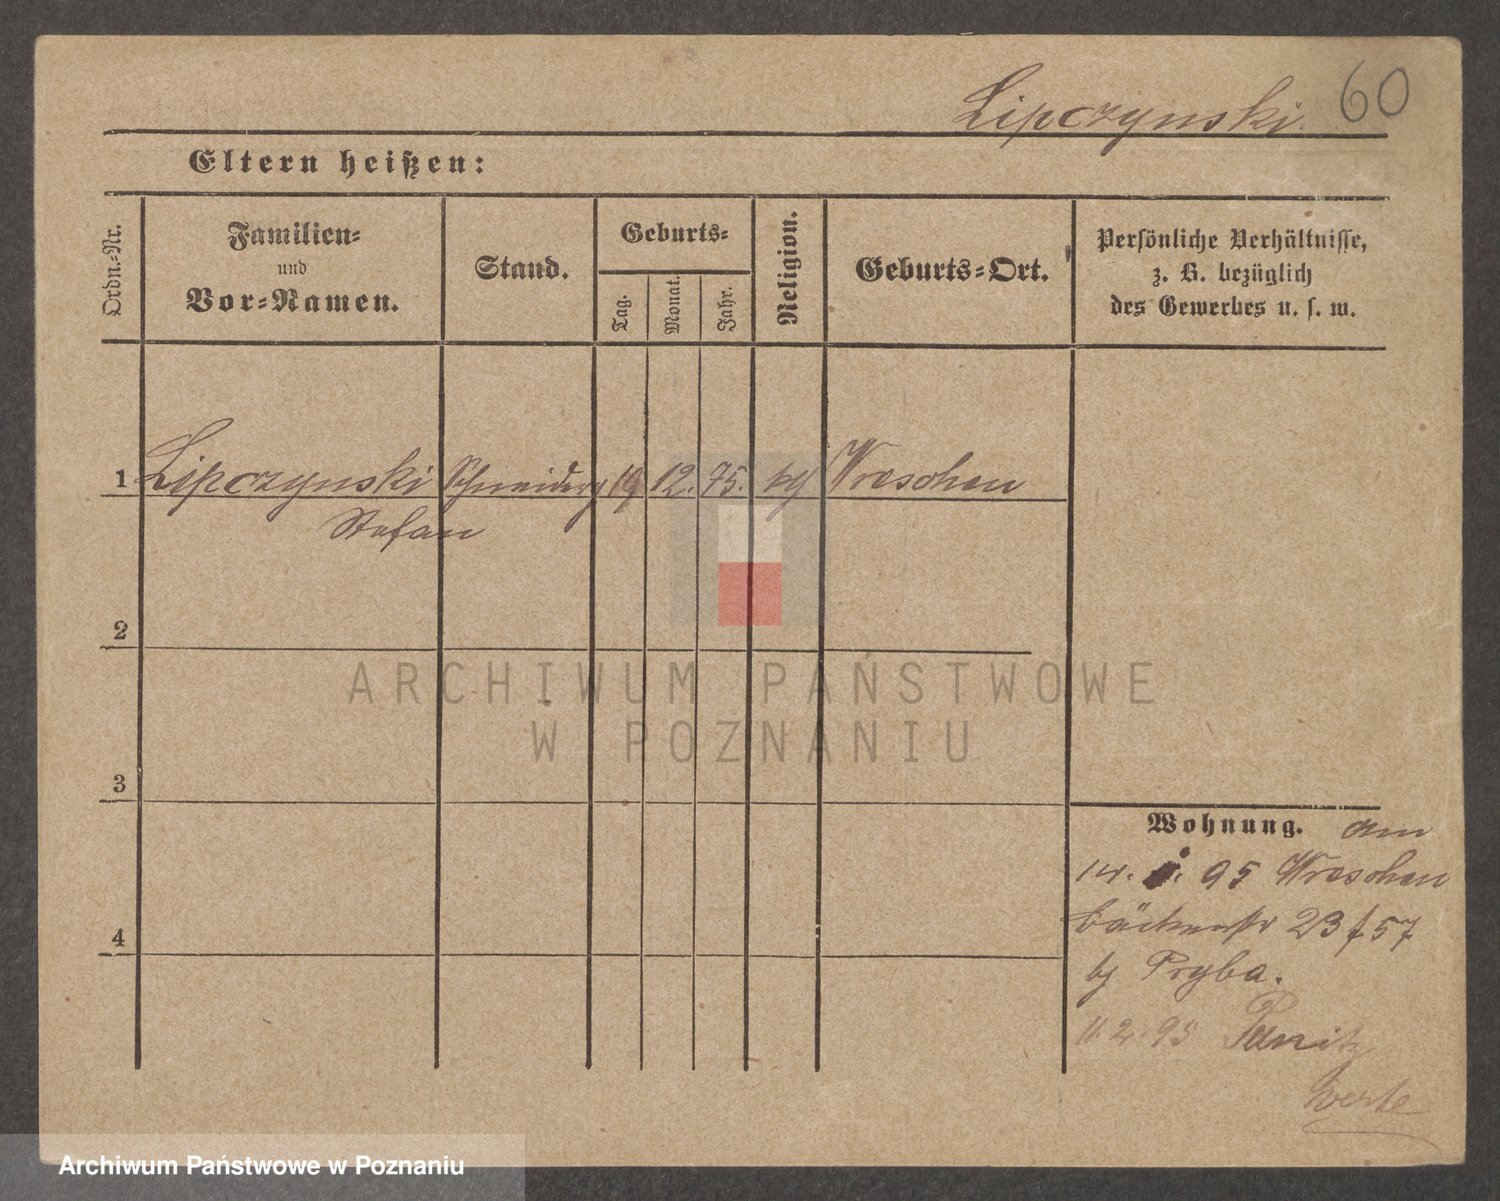 Lipczynski. 60
Eltern heißen:
Ordn.-Nr.
Familien-
und
Vor-Namen.
Stand.
Geburts-
Tag.
Monat.
Jahr.
Religion.
Geburts-Ort.
Persönliche Verhältnisse,
z. B. bezüglich
des Gewerbes u. s. w.
1 Lipczynski Schneiderg 19 12. 75. kg Wreschen
Stefan
2
3
4
ARCHIWUM PAŃSTWOWE
W POZNANIU
Wohnung. am
14. 95 Wreschen
Bäckerstr 23 f 57
by Pryba.
11. 2. 95
Archiwum Państwowe w Poznaniu